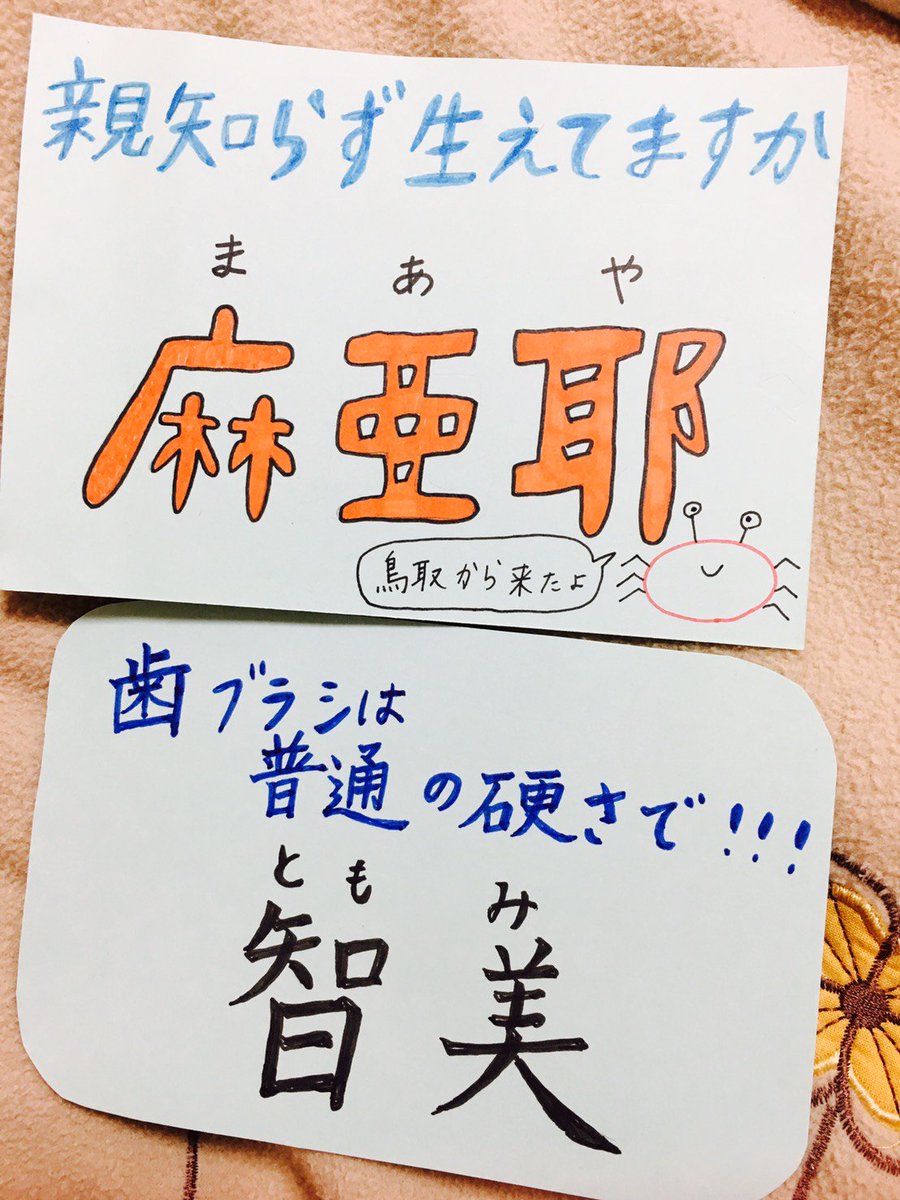 親知らず生えてますか
まあや
麻亜耶
鳥取から来たよ
歯ブラシは
普通の硬さで!!!
ともみ
智美